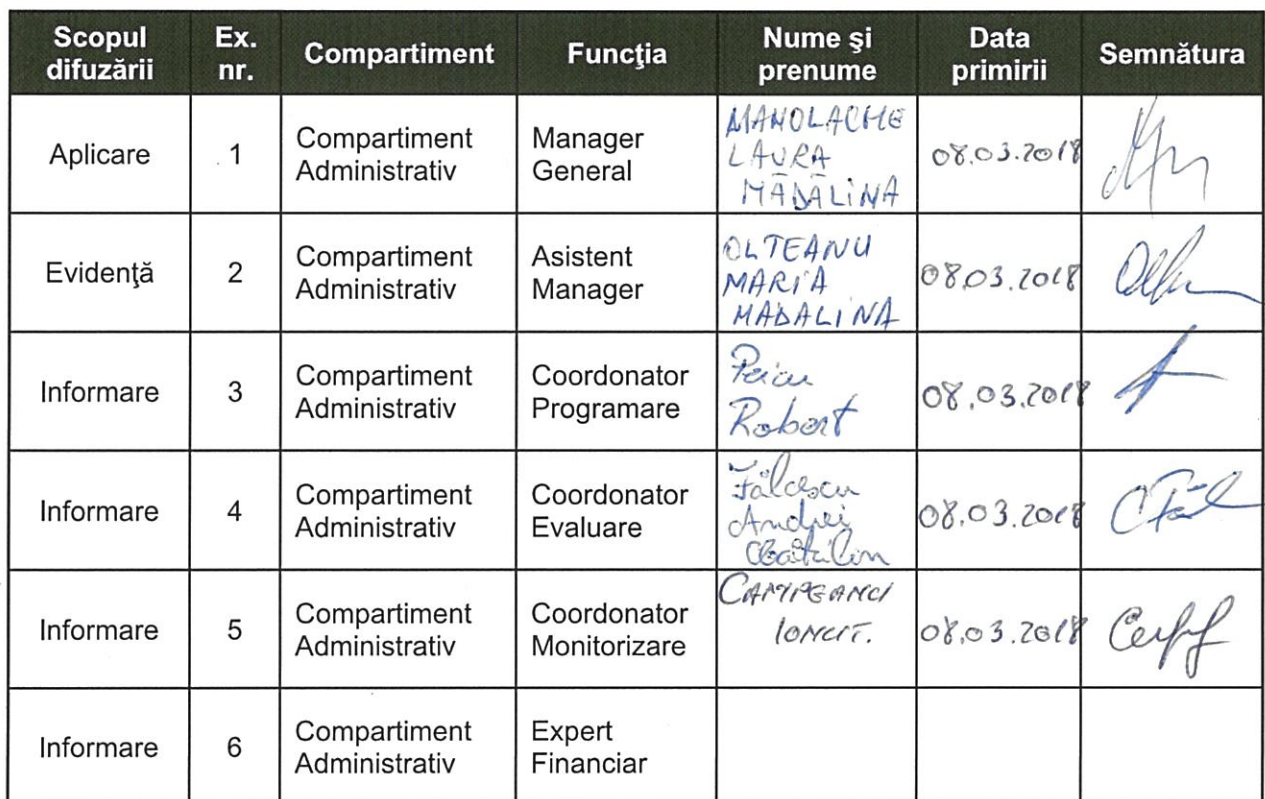 Scopul difuzării Ex. nr. Compartiment Funcţia Nume şi prenume Data primirii Semnătura
Aplicare 1 Compartiment Administrativ Manager General MANOLACHE LAURA MĂDĂLINA 08.03.2018
Evidenţă 2 Compartiment Administrativ Asistent Manager OLTEANU MARIA MADALINA 08.03.2018
Informare 3 Compartiment Administrativ Coordonator Programare Robert 08.03.2018
Informare 4 Compartiment Administrativ Coordonator Evaluare Fălcescu Andrei Cătălin 08.03.2018
Informare 5 Compartiment Administrativ Coordonator Monitorizare 08.03.2018
Informare 6 Compartiment Administrativ Expert Financiar